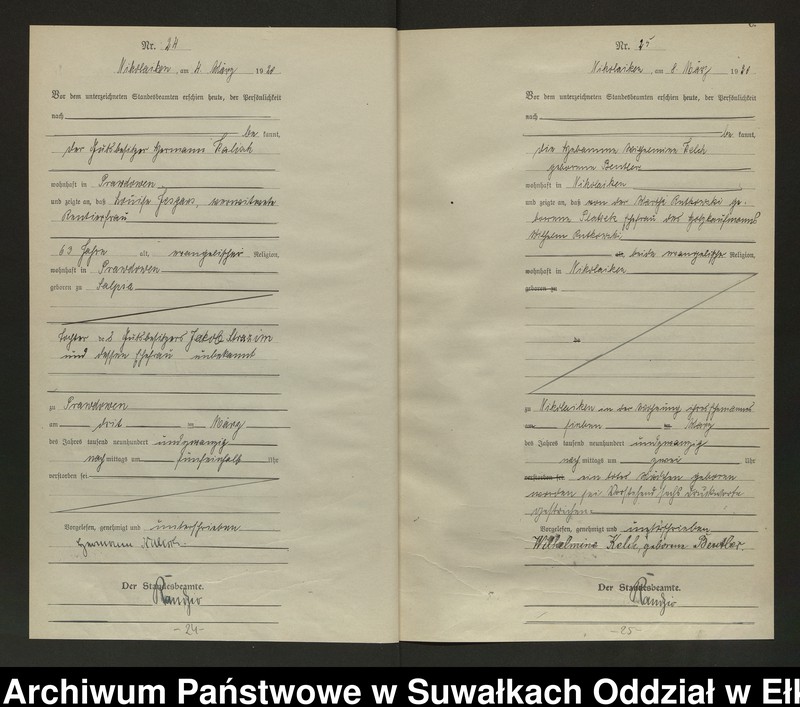 Nr. 24
Nikolaiken, am 4. März 1920
Vor dem unterzeichneten Standesbeamten erschien heute, der Persönlichkeit
nach
be kannt,
der Gutsbesitzer Hermann
wohnhaft in Prawdowen
und zeigte an, daß Louise verwitwete
Rentierfrau
63 Jahre alt, evangelischer Religion,
wohnhaft in Prawdowen
geboren zu Salpia
Tochter des Gutsbesitzers Jakob
und dessen Ehefrau unbekannt
zu Prawdowen
am drit März
des Jahres tausend neunhundert undzwanzig
nach mittags um fünfeinhalb Uhr
verstorben sei
Vorgelesen, genehmigt und unterschrieben
Hermann
Der Standesbeamte.
-24-
Nr. 25
Nikolaiken, am 8. März 19
Vor dem unterzeichneten Standesbeamten erschien heute, der Persönlichkeit
nach
be kannt,
die Hebamme Wilhelmine Kelch
geborene Bentler
wohnhaft in Nikolaiken
und zeigte an, daß von der Martha Rutkowski ge-
borene Ehefrau des Holzkaufmanns
Wilhelm Rutkowski,
beide evangelische Religion,
wohnhaft in Nikolaiken
geboren zu
zu
zu Nikolaiken in der Wohnung ihres Ehemannes
am sieben März
des Jahres tausend neunhundert undzwanzig
nach mittags um zwei Uhr
verstorben sei ein totes Mädchen geboren
worden sei. Vorstehend sechs Druckworte
gestrichen.
Vorgelesen, genehmigt und unterschrieben
Wilhelmine Kelch, geborene Bentler.
Der Standesbeamte.
-25-
Archiwum Państwowe w Suwałkach Oddział w Ełk